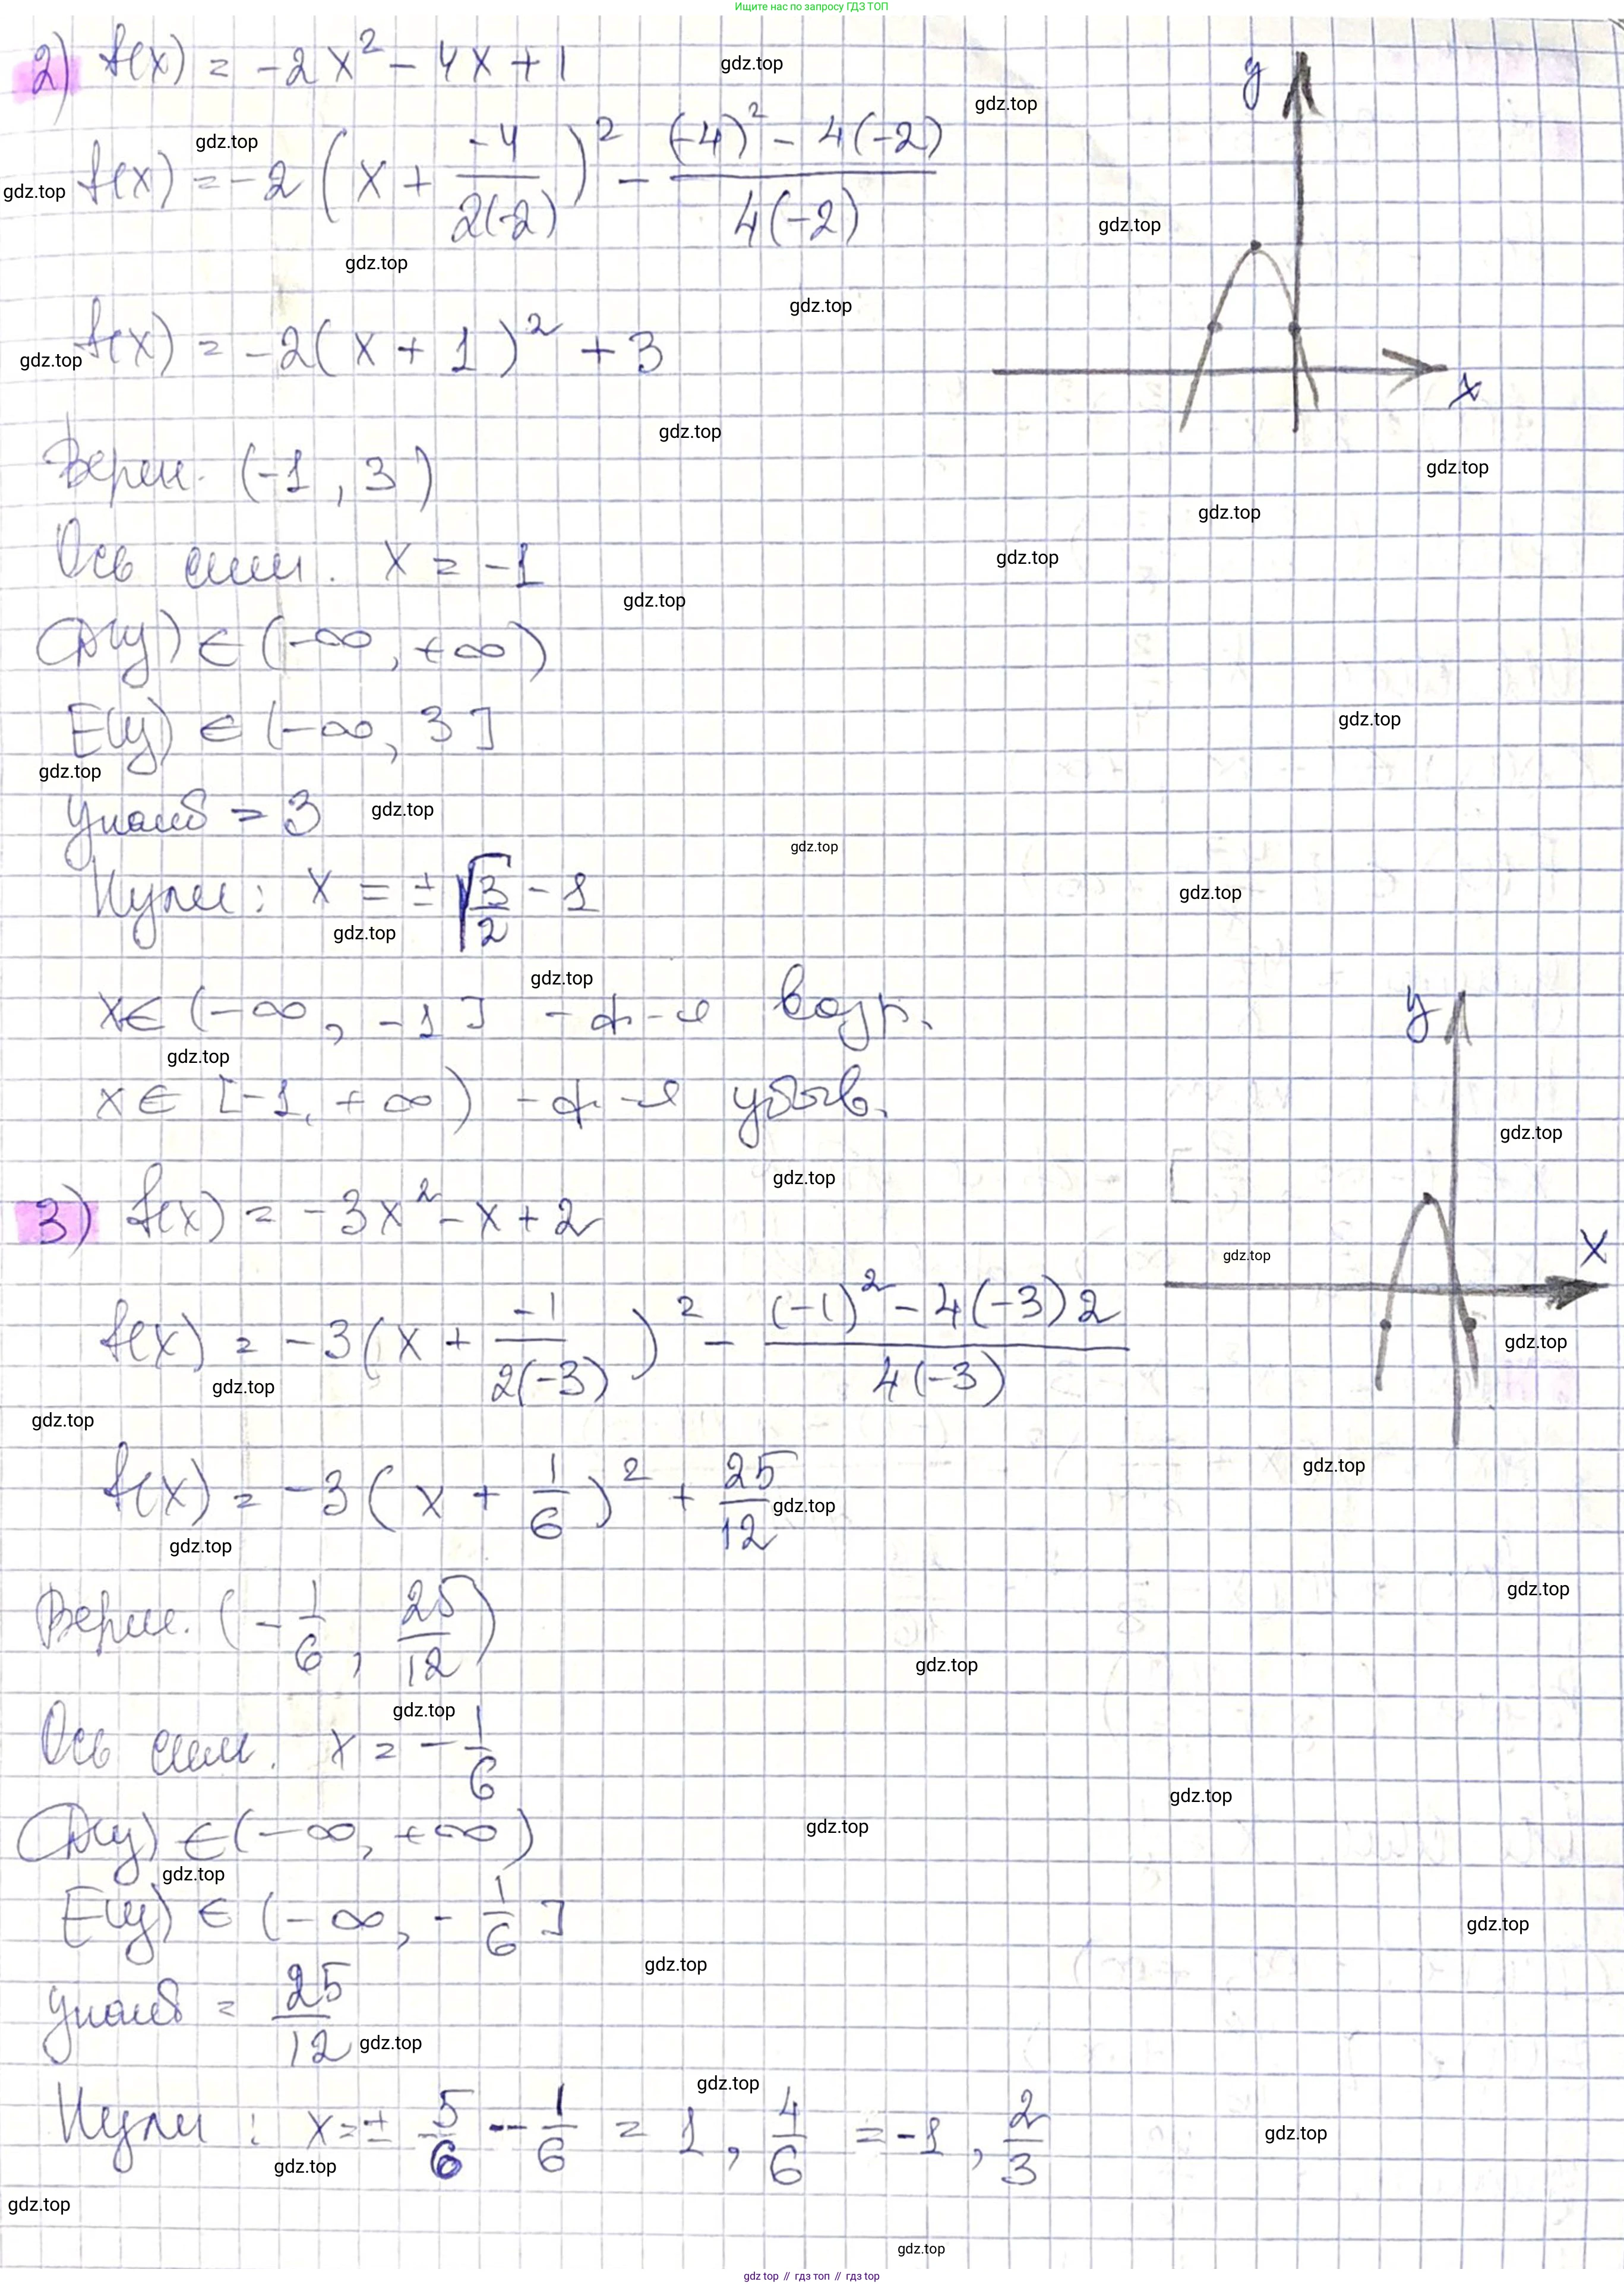 Ищите нас по запросу ГДЗ ТОП
2) f(x) = -2x² - 4x + 1
f(x) = -2(x + \frac{-4}{2(-2)})² - \frac{(-4)² - 4(-2)}{4(-2)}
f(x) = -2(x + 1)² + 3
y
x
Верш. (-1, 3)
Ось сим. x = -1
D(y) ∈ (-∞, +∞)
E(y) ∈ (-∞, 3]
yнаиб = 3
Нули: x = ±\sqrt{\frac{3}{2}} - 1
x ∈ (-∞, -1] - ф-я возр.
x ∈ [-1, +∞) - ф-я убыв.
3) f(x) = -3x² - x + 2
f(x) = -3(x + \frac{-1}{2(-3)})² - \frac{(-1)² - 4(-3)2}{4(-3)}
y
x
f(x) = -3(x + \frac{1}{6})² + \frac{25}{12}
Верш. (-\frac{1}{6}, \frac{25}{12})
Ось сим. x = -\frac{1}{6}
D(y) ∈ (-∞, +∞)
E(y) ∈ (-∞, -\frac{1}{6}]
yнаиб = \frac{25}{12}
Нули: x = ±\frac{5}{6} - \frac{1}{6} = 1, \frac{4}{6} = -1, \frac{2}{3}
gdz.top
gdz top // гдз топ // гдз top